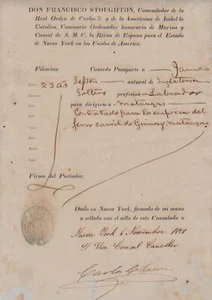 DON FRANCISCO STOUGHTON, Comendador de la
Real Orden de Carlos 3.º y de la Americana de Isabel la
Catolica, Comisario Ordenador honorario de Marina y
Consul de S. M. C. la Reina de España para el Estado
de Nueva York en los Unidos de América.
Filiacion
Concedo Pasaporte a James
Edad 23 años
Sefton natural de Inglaterra
Soltero profesion Labrador
para dirigirse a Matanzas
Contratado para la empresa del
ferro carril de Guines y Matanzas
Firma del Portador.
Dado en Nueva York, firmado de mi mano
y sellado con el sello de este Consulado a
Nueva York 6 Noviembre
El Vice Consul Canciller